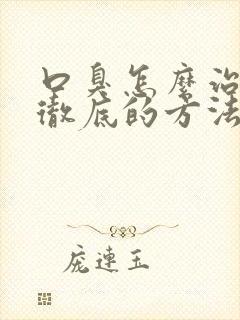 口臭怎麼治
徹底的方法
庞連玉